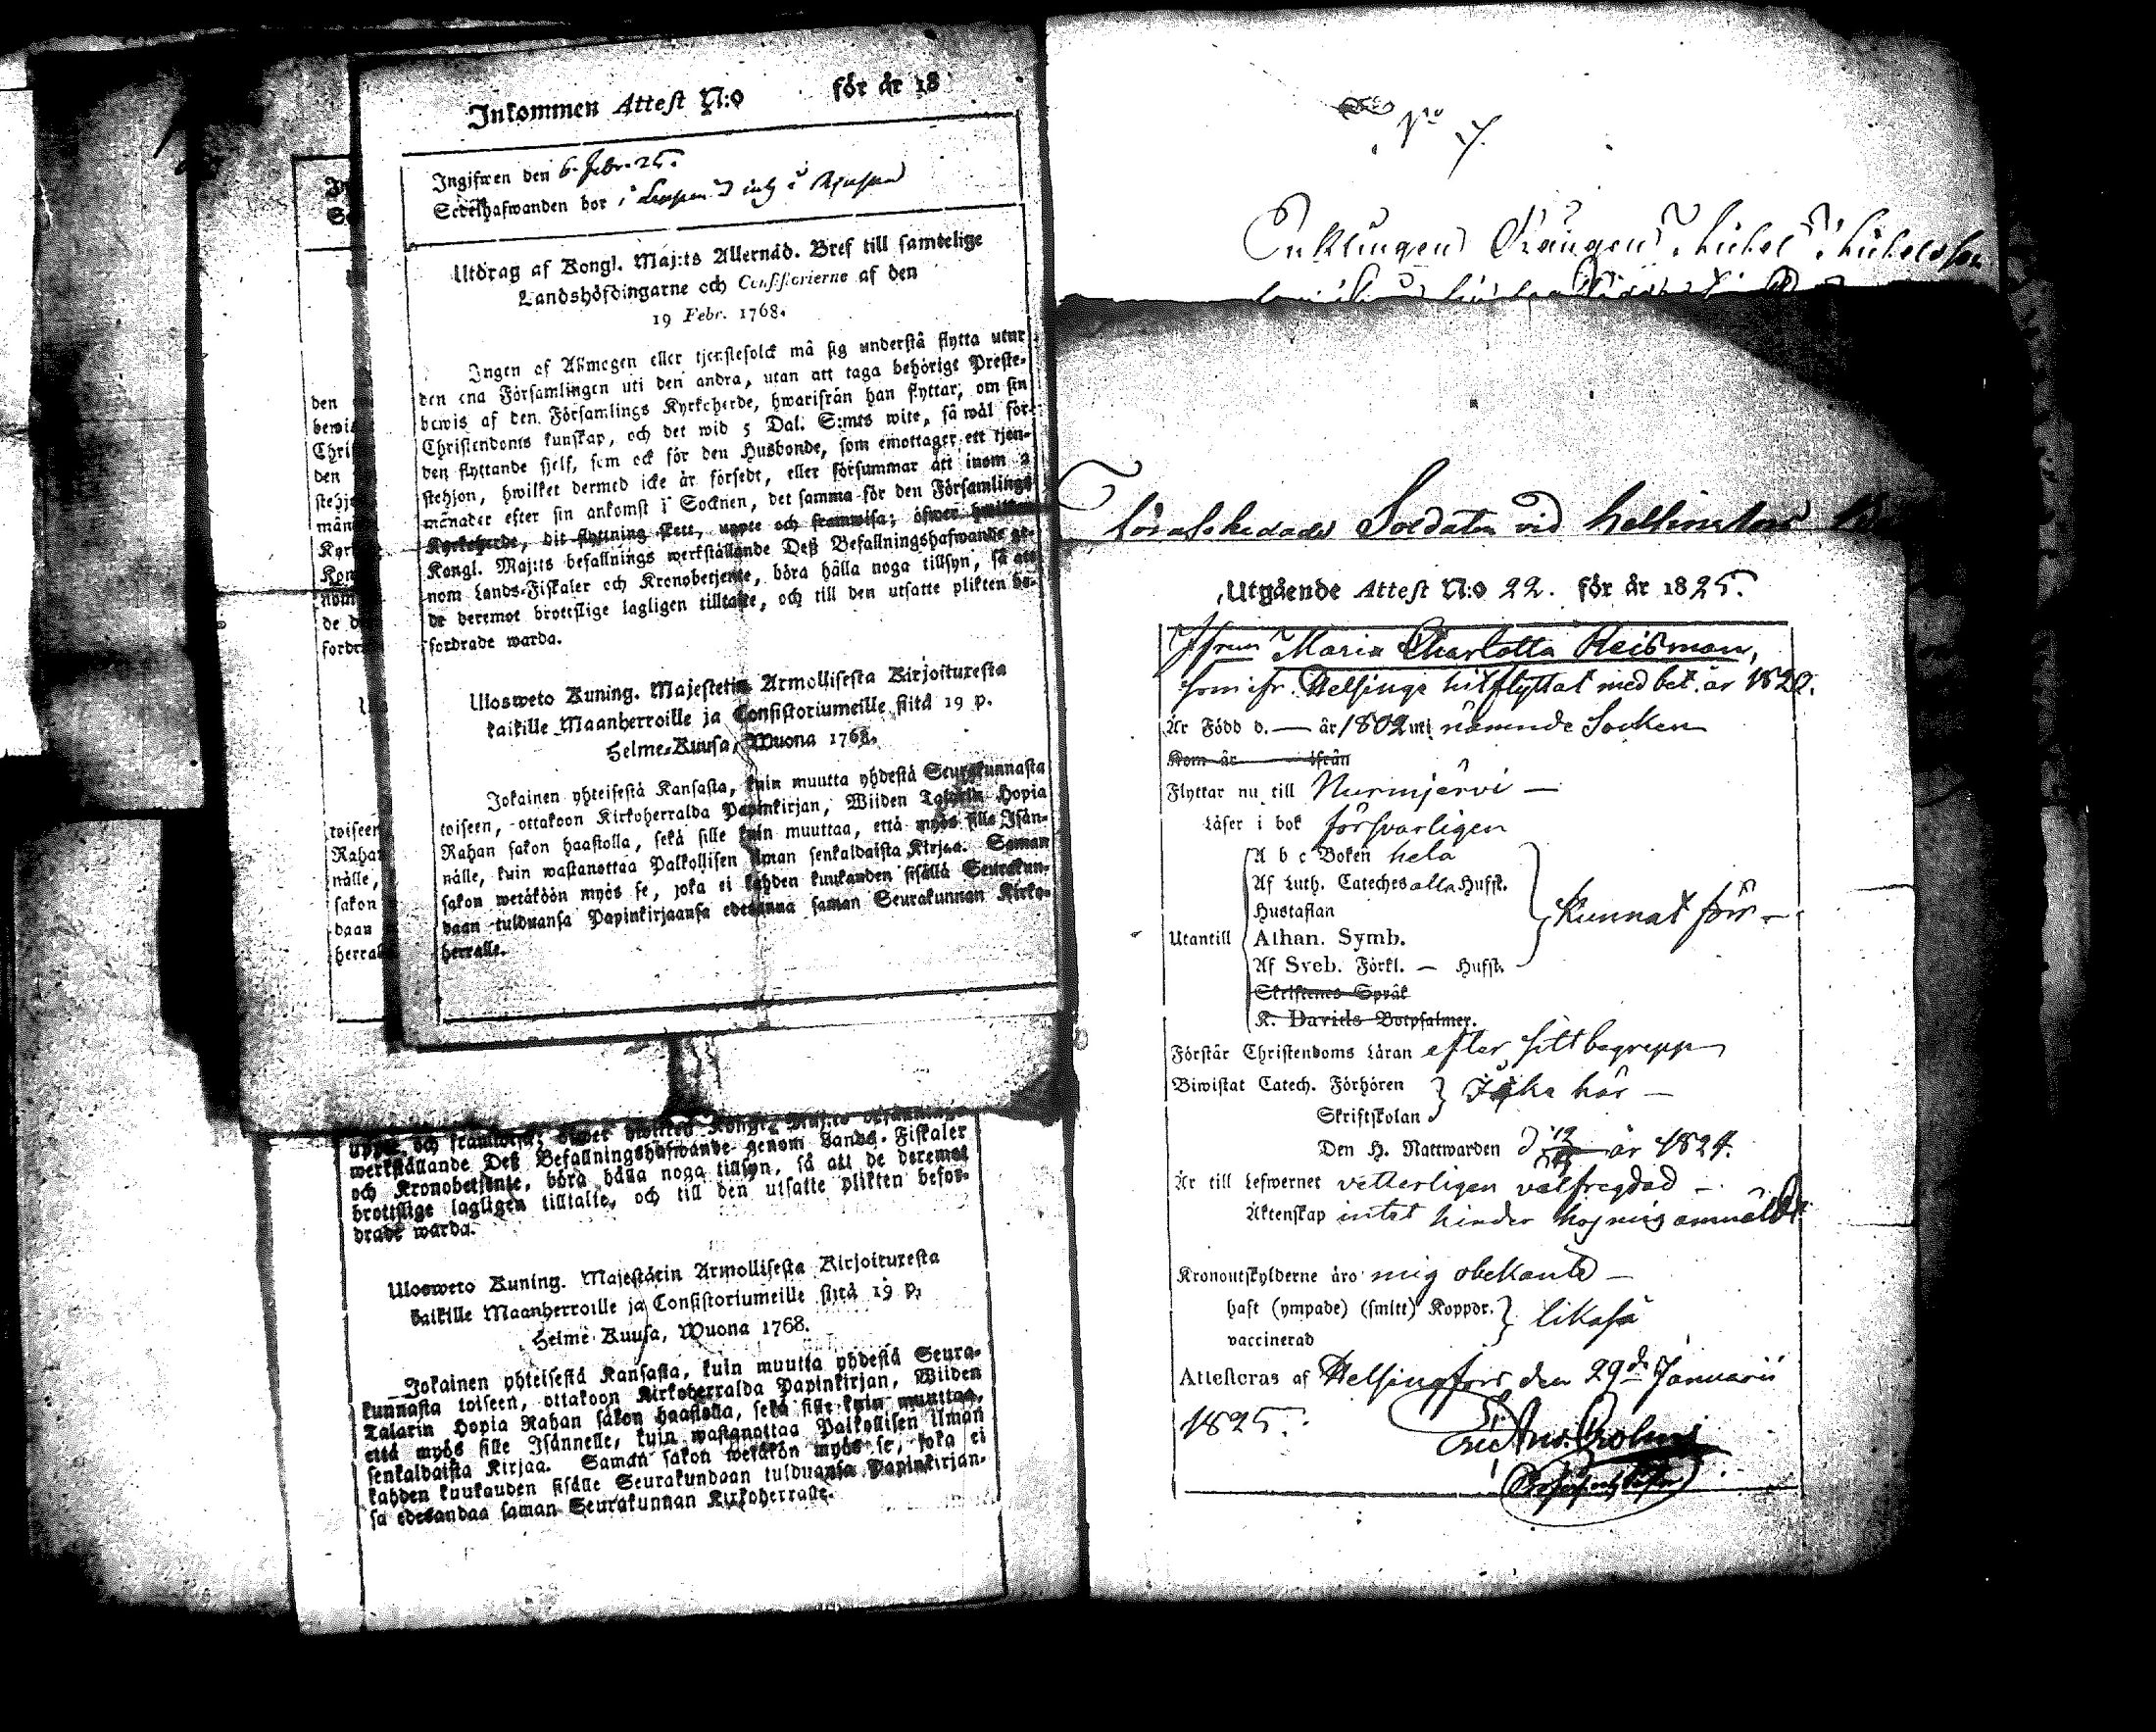 Inkommen Attest N:o för år 18
Ingifwen den 6. Febr. 25.
Sedelhafwanden bor i
Utdrag af Kongl. Maj:ts Allernåd. Bref till samtelige
Landshöfdingarne och Consistorierne af den
19 Febr. 1768.
Ingen af Allmogen eller tjenstefolck må sig understå flytta utur
den ena Församlingen uti den andra, utan att taga behörige Preste-
bewis af den Församlings Kyrkoherde, hwarifrån han flyttar, om sin
Christendoms kunskap, och det wid 5 Dal. S:mts wite, så wäl för
den flyttande sjelf, som ock för den Husbonde, som emottager ett tjen-
stehjon, hwilket dermed icke är försedt, eller försummar att inom 2
månader efter sin ankomst i Socknen, det samma för den Församlings
Kyrkoherde, dit flyttning skett, uppte och framwisa; öfwer hwilken
Kongl. Maj:ts befallnings werkställande Deß Befallningshafwande ge-
nom Lands-Fiskaler och Kronobetjente, böra hålla noga tillsyn, så att
de deremot brottslige lagligen tilltalte, och till den utsatte plikten be-
fordrade warda.
Ulosweto Kuning. Majestetin Armollisesta Kirjoituresta
kaikille Maanherroille ja Consistoriumeille siitä 19 p.
Helme-Kuusa, Wuona 1768.
Jokainen yhteisestä Kansasta, kuin muutta yhdestä Seurakunnasta
toiseen, ottakoon Kirkoherralda Papinkirjan, Wiiden Talarin Hopia
Rahan sakon haastolla, sekä sille kuin muuttaa, että myös sille Isän-
nälle, kuin wastanottaa Palkollisen ilman senkaldaista Kirjaa. Saman
sakon wetäköön myös se, joka ei kahden kuukauden sisällä Seurakun-
daan tulduansa Papinkirjaansa edesanna saman Seurakunnan Kirko-
herralle.
den
bewis
Chris
den
Kyrk
Kon
nom
de d
fordr
toiseen
Rahan
nälle,
sakon
daan
herrall
uppte och framwisa; öfwer hwilken Kongl. Maj:ts befallnings
werkställande Deß Befallningshafwande genom Lands-Fiskaler
och Kronobetjente, böra hålla noga tillsyn, så att de deremot
brottslige lagligen tilltalte, och till den utsatte plikten befor-
drade warda.
Ulosweto Kuning. Majestätin Armollisesta Kirjoituresta
kaikille Maanherroille ja Consistoriumeille siitä 19 p.
Helme Kuusa, Wuona 1768.
Jokainen yhteisestä Kansasta, kuin muutta yhdestä Seura-
kunnasta toiseen, ottakoon Kirkoherralda Papinkirjan, Wiiden
Talarin Hopia Rahan sakon haastolla, sekä sille kuin muuttaa,
että myös sille Isännelle, kuin wastanottaa Palkollisen ilman
senkaldaista Kirjaa. Saman sakon wetäkön myös se, joka ei
kahden kuukauden sisälle Seurakundaan tulduansa Papinkirjan-
sa edesandaa saman Seurakunnan Kirkoherralle.
No 7.
Enklingen Drängen Michel Michelsson
Förafskedade Soldaten vid Helsinefors
Utgående Attest N:o 22. för år 1825.
Jfrun Maria Charlotta Reisman,
som ifr. Helsinge hitflyttat med bet. år 1820.
Är Född d. — år 1802 uti nämnde Socken
Kom år ifrån
Flyttar nu till Nurmjervi —
Läser i bok försvarligen
A b c Boken hela
Af Luth. Cateches alla Hufst.
Hustaflan
Utantill Athan. Symb. Kunnat förr —
Af Sveb. Förkl. — Hufst.
Skriftenes Språk
K. Davids Botpsalmer.
Förstår Christendoms Läran efter sitt begrepp
Biwistat Catech. Förhören Icke här —
Skriftskolan
Den H. Nattwarden d. år 1824.
Är till Lefwernet vetterligen välfregdad —
Äktenskap intet hinder hos mig anmäldt
Kronoutskylderne äro mig obekante —
haft (ympade) (smitt) Koppor. likaså
vaccinerad
Attesteras af Helsingfors den 29de Januarii
1825.